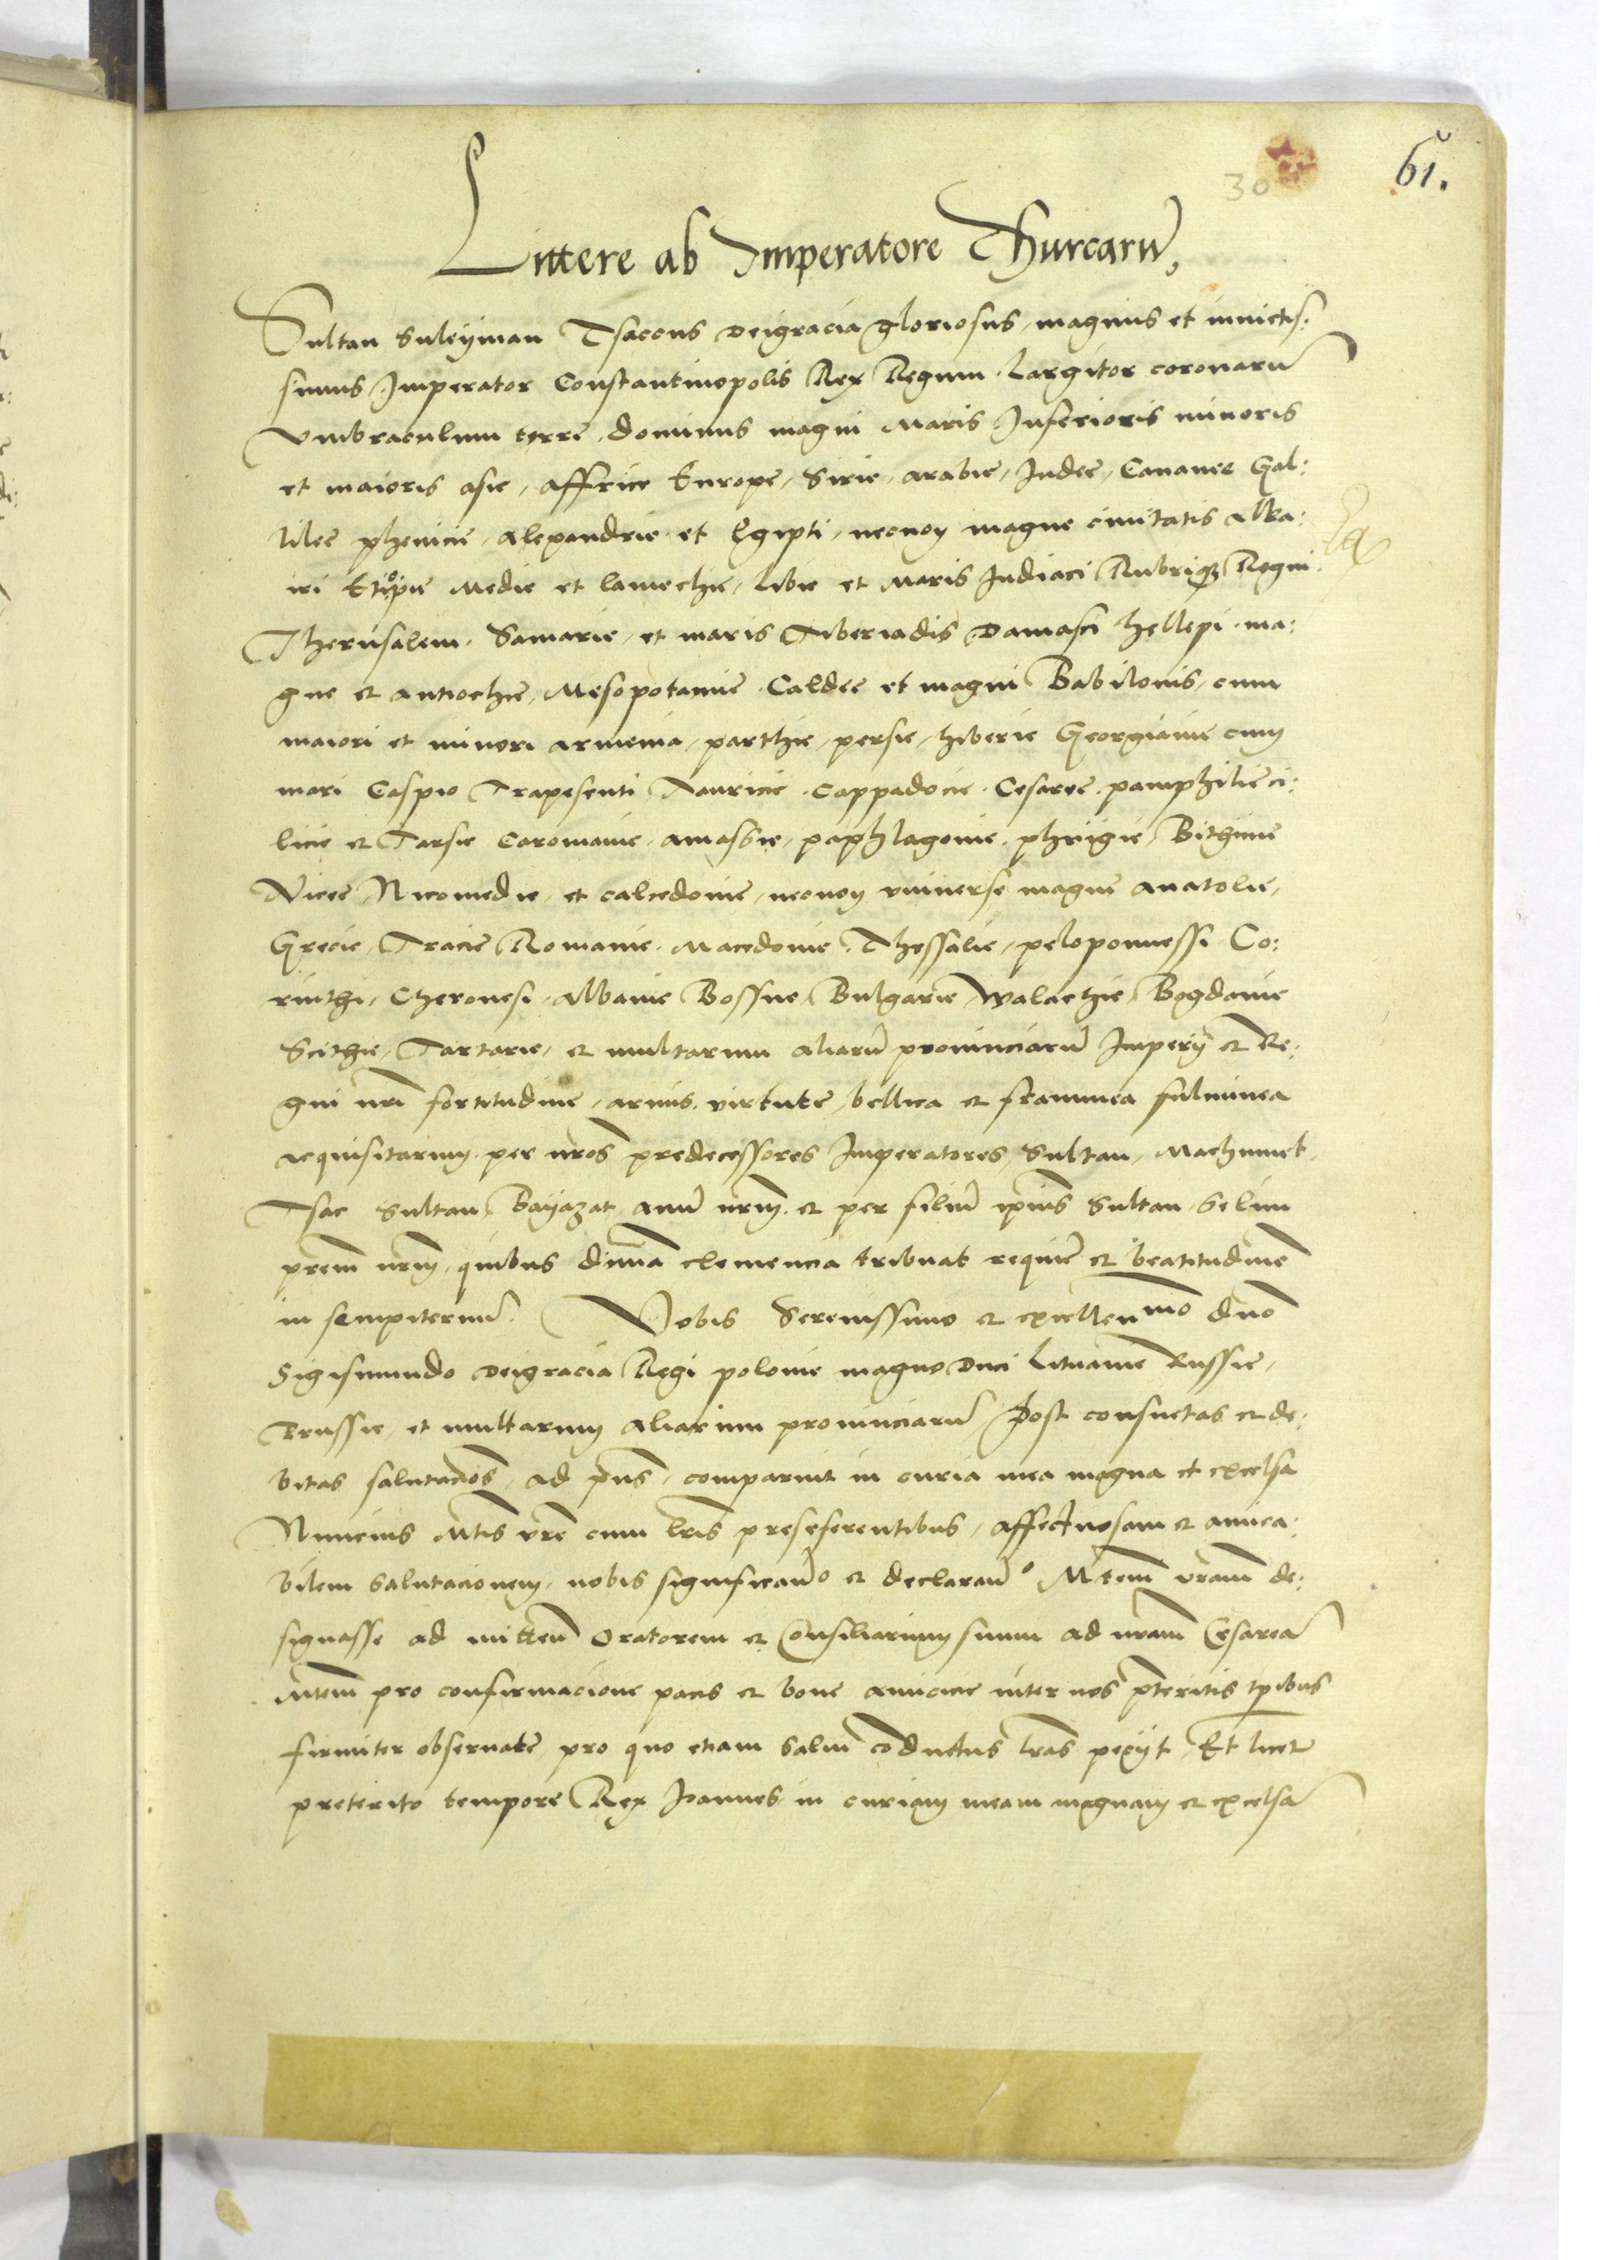 30
61.
Littere ab Imperatore Thurcarū,
Sultan Suleyman Tsacous Dei gracia gloriosus, magnus et inuictis:
simus Imperator Constantinopolis Rex Regum. Largitor coronarū
Vmbraculum terre, dominus magni Maris Inferioris minoris
et maioris asie, Affrice Europe, Sirie, arabie, Iudee, Cananee Gal:
lilee phenicie, Alexandrie et Egipti, necnon magne ciuitatis Alka:
iri Etiopie Medie et lamechie, Libie et Maris Indiaci Rubriqȝ Regni
Iherusalem. Samarie, et maris Tiberiadis Damasci hellepi. ma:
gne et antiochie, Mesopotamie. Caldee et magni Babilonis, cum
maiori et minori armenia, parthie, persie, hiberie Georgianie cum
mari Caspio Trapesenti Tauricie. Cappadocie. Cesaree. pamphilie ci:
licie et Tarsie Caromanie. amassie, paphlagonie. phrigie, Bithinie
Nicee, Nicomedie, et calcedonie, necnon vniuerse magne anatolie,
Grecie, Tracie Romanie. Macedonie. Thessalie, peloponnessi. Co:
rinthi, Cheronesi, Albanie Bossne, Bulgarie, Walachie, Bogdanie
Scithie, Tartarie, et multarum aliarū prouinciarū Imperij et Re:
gni nrī fortitudine, armis. virtute, bellica et framinea fulminea
acquisitarum per nr̄os predecessores Imperatores, Sultan, Machumet,
Tsac Sultan, Bayazat auū nrm̄. et per filiū ipius Sultan, Selim
prem̄ nrm̄, quibus diuīa clemencia tribuat requiē et beatitudinē
in sempiternū. Vobis Serenissimo et excellenmo dn̄o
Sigismundo Dei gracia Regi polonie magno Duci Lituanie Russie,
Prussie, et multarum aliarum prouinciarū Post consuetas et de:
bitas salutacōēs, ad pn̄s, comparuit in curia mea magna et excelsa
Nuncius Mtis vrē cum lris̄ preseferentibus, affectuosam et amica:
bilem salutacionem, nobis significanō et declaranō Mtem̄ vram̄ de:
signasse ad mittenī Oratorem et Consiliarium suum ad nram̄ Cesareā
Mtem̄ pro confirmacione pacis et bone amicicie inter nos pr̄teritis tp̄ibus
firmiter obseruate, pro quo etiam saluī cōductus lras̄ pecijt, Et licet
preterito tempore Rex Joannes in curiam meam magnam et excelsā